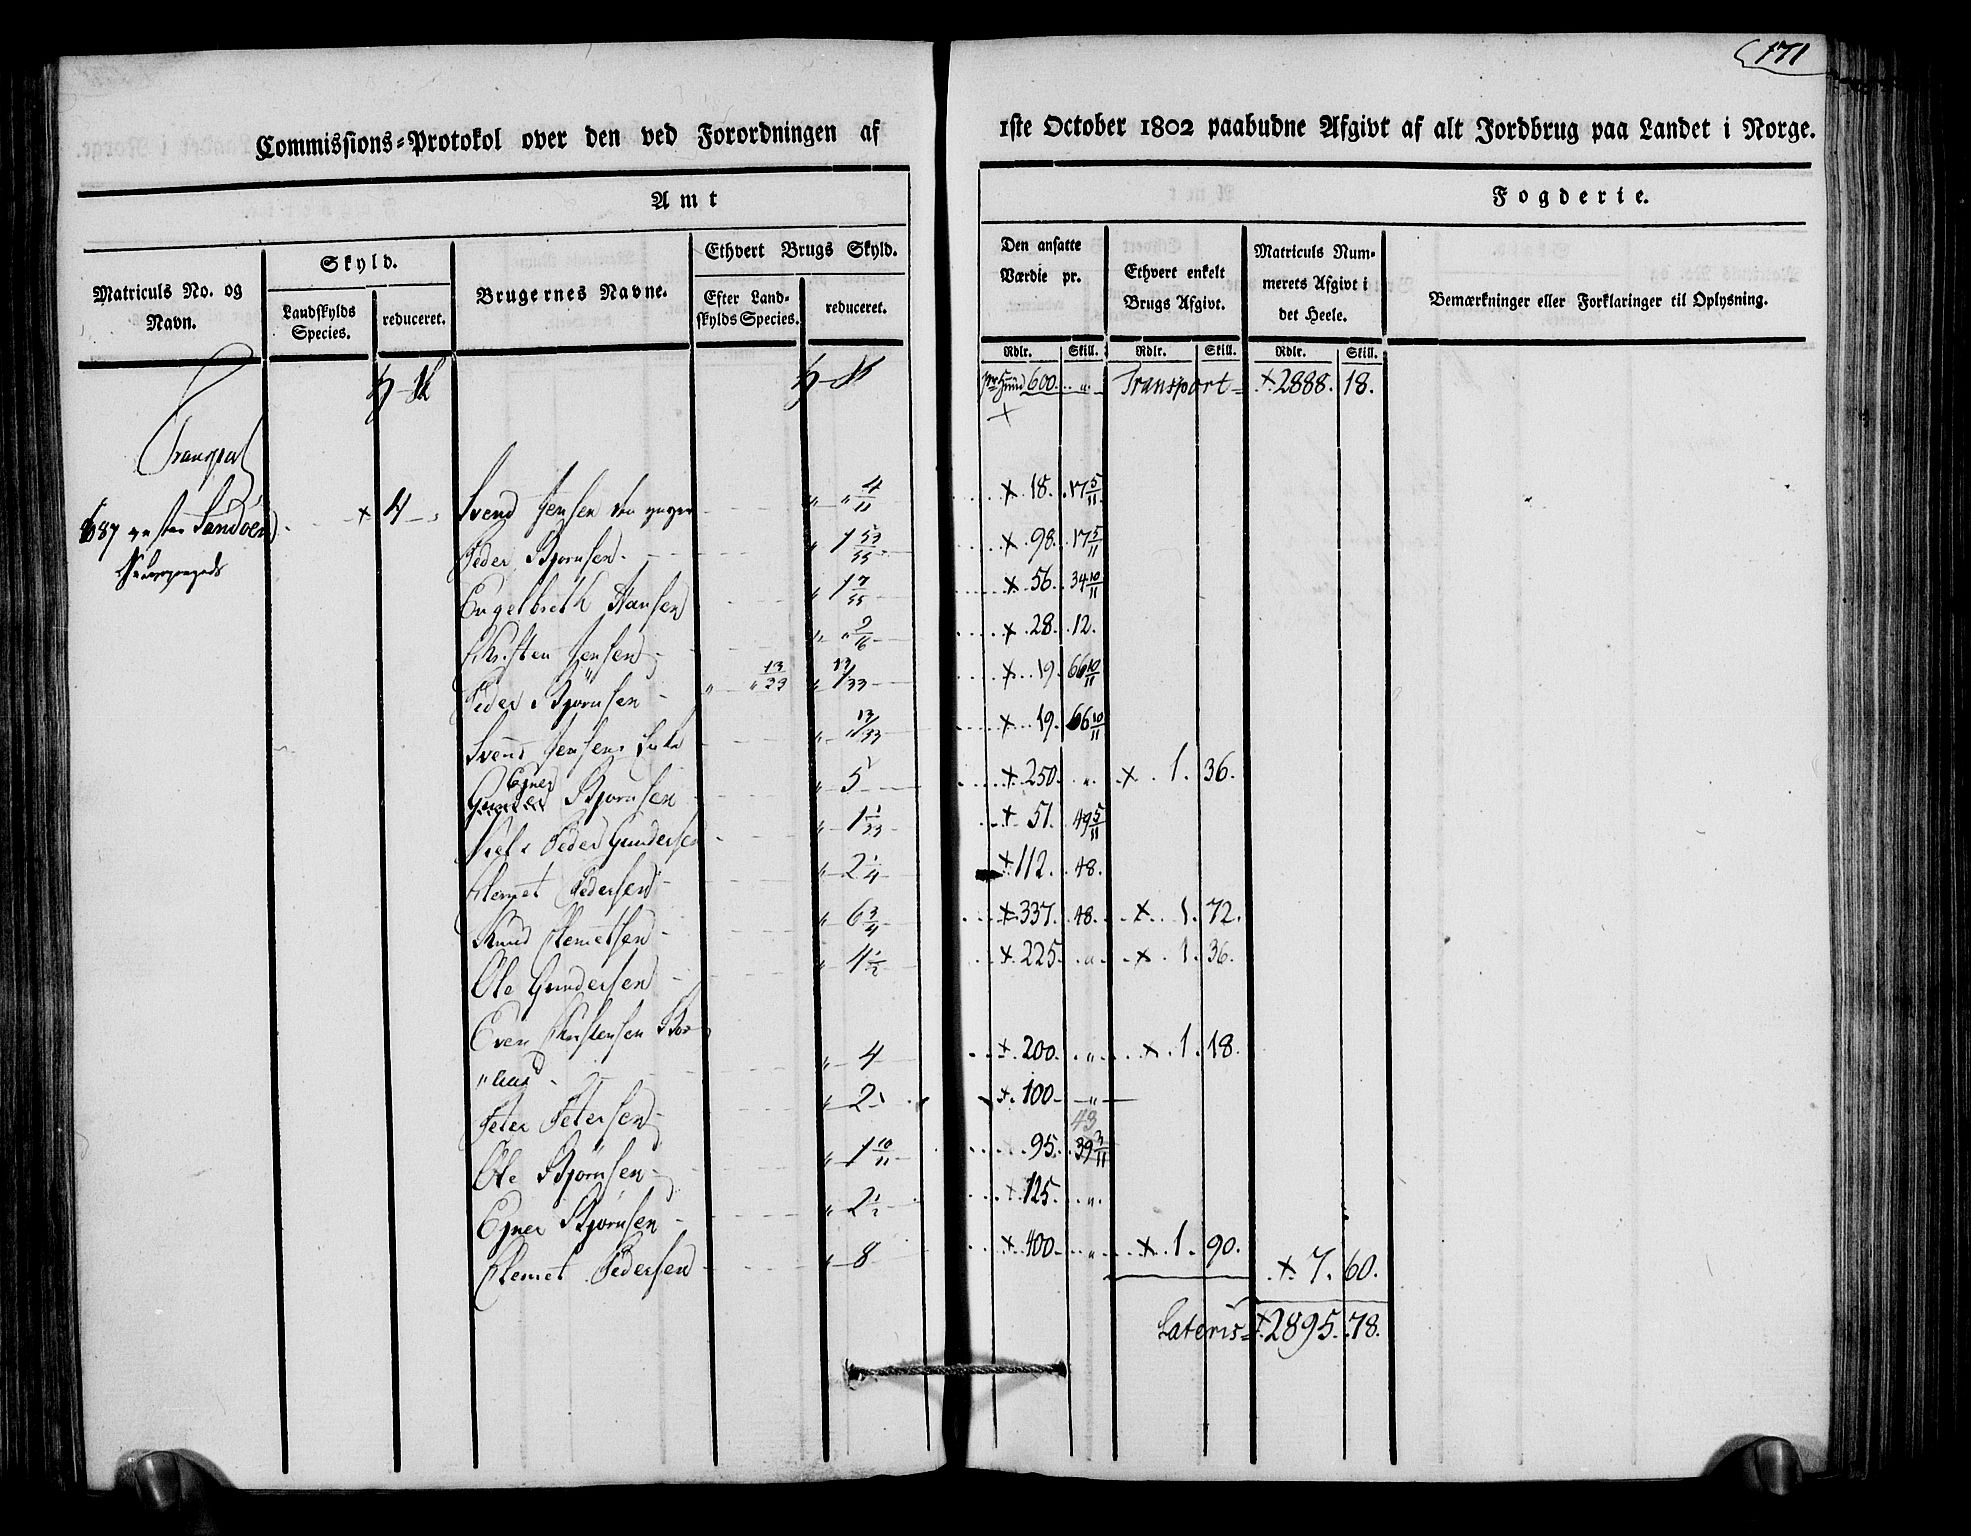 171
Commissions-Protokol over den ved Forordningen af 1ste October 1802 paabudne Afgivt af alt Jordbrug paa Landet i Norge.
Amt Fogderie.
Matriculs No. og Navn.
Skyld.
Landskylds Species.
reduceret.
Brugernes Navne.
Ethvert Brugs Skyld.
Efter Land- skylds Species.
reduceret.
Den ansatte Værdie pr.
Ethvert enkelt Brugs Afgivt.
Matriculs Num- merets Afgivt i det Heele.
Bemærkninger eller Forklaringer til Oplysning.
Rdlr. Skill. Rdlr. Skill. Rdlr. Skill.
pr Hund 600 „ Transport 2888. 18.
Transport
87 Sandøen 4 Svend Jensen den „ „ 4/11 18. 17 5/11
Peder Bjørnsen „ 1 53/55 98. 17 5/11
Engelbreth Hansen „ 1 7/55 56. 34 10/11
Christen Jensen „ „ 9/16 28. 12.
Peder Bjørnsen „ „ 13/33 „ 13/33 19. 66 10/11
Svend Jensens „ „ 13/33 19. 66 10/11
Ejner Bjørnsen „ 5 250. „ 1. 36.
Niels Peder Gundersen „ 1 1/33 51. 49 5/11
Clemet Pedersen „ 2 1/4 112. 48.
Knud Clemetsen „ 6 3/4 337. 48. 1. 72.
Ole Gundersen „ 4 1/2 225. „ 1. 36.
Even Christensen
„ 4 200. „ 1. 18.
Peter Petersen „ 2 100 „
43
Ole Bjørnsen „ 1 10/11 95. 39 3/11
Ejner Bjørnsen „ 2 1/2 125. „
Clemet Pedersen „ 8 400. „ 1. 90. 7. 60.
Lateris 2895. 78.